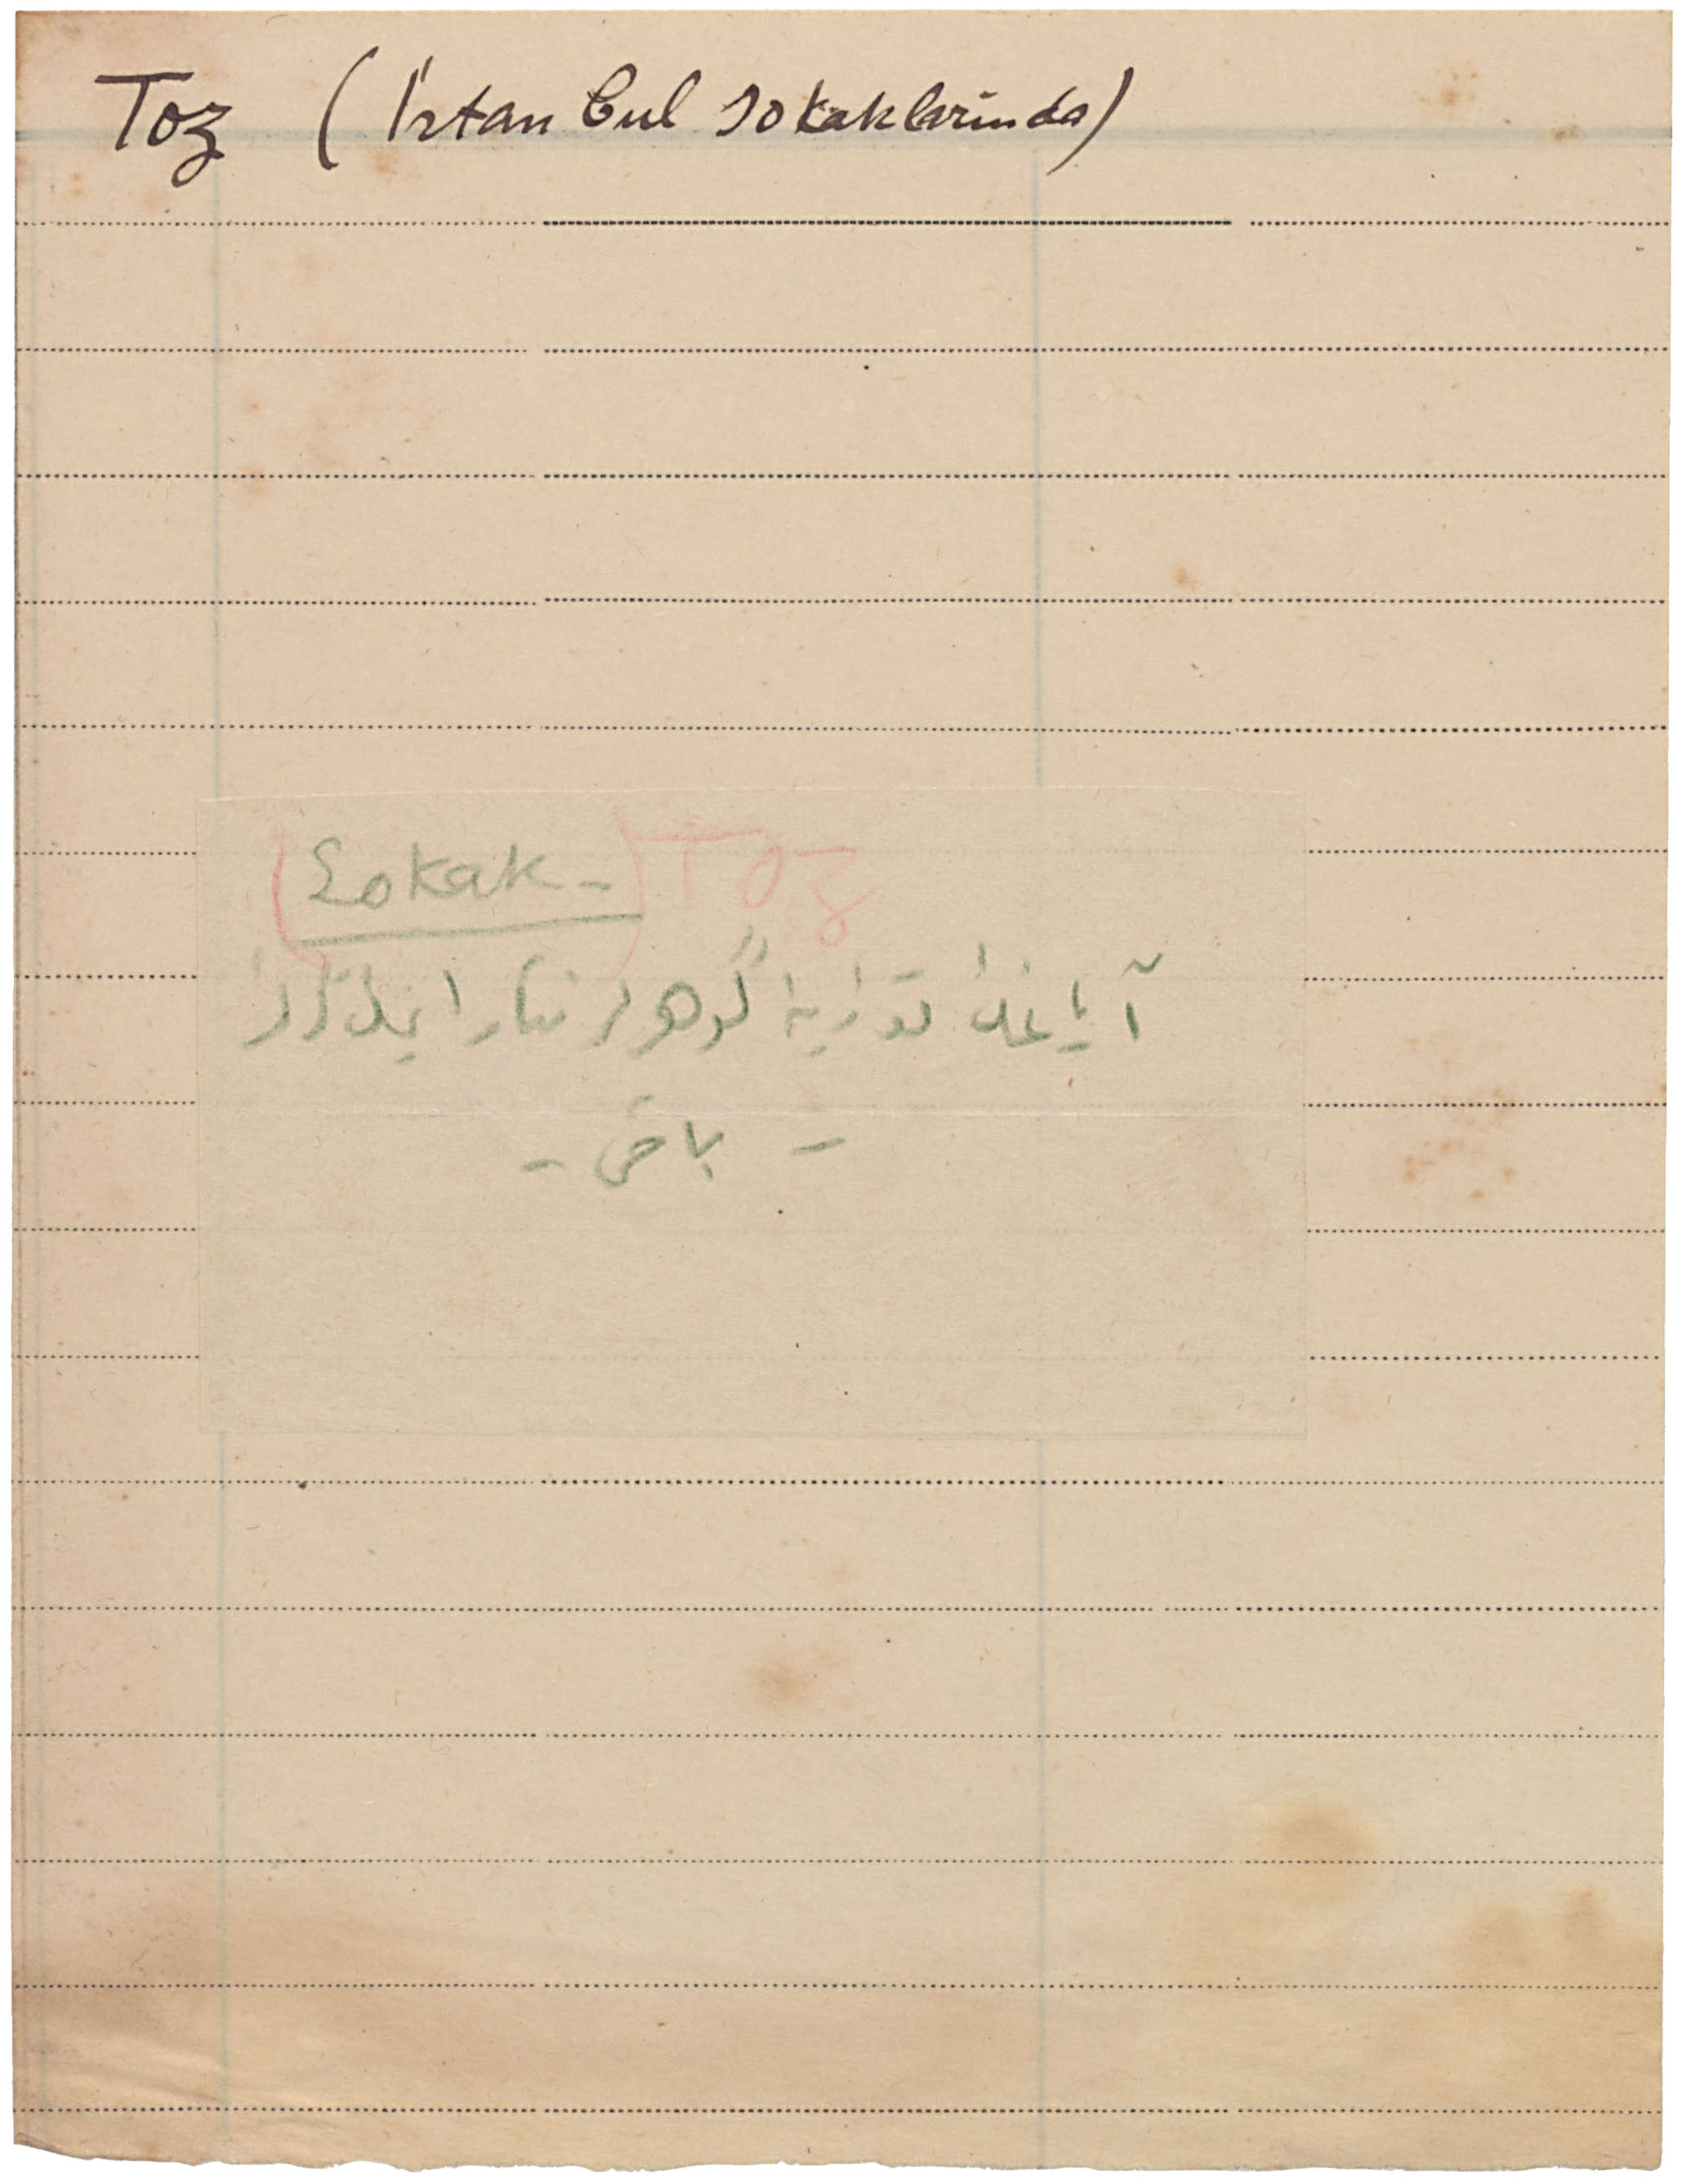 Toz (İstanbul sokaklarında)
(Sokak-) Toz
آیاغك توزینه گوهر نثار ایدرلر
- باقی -